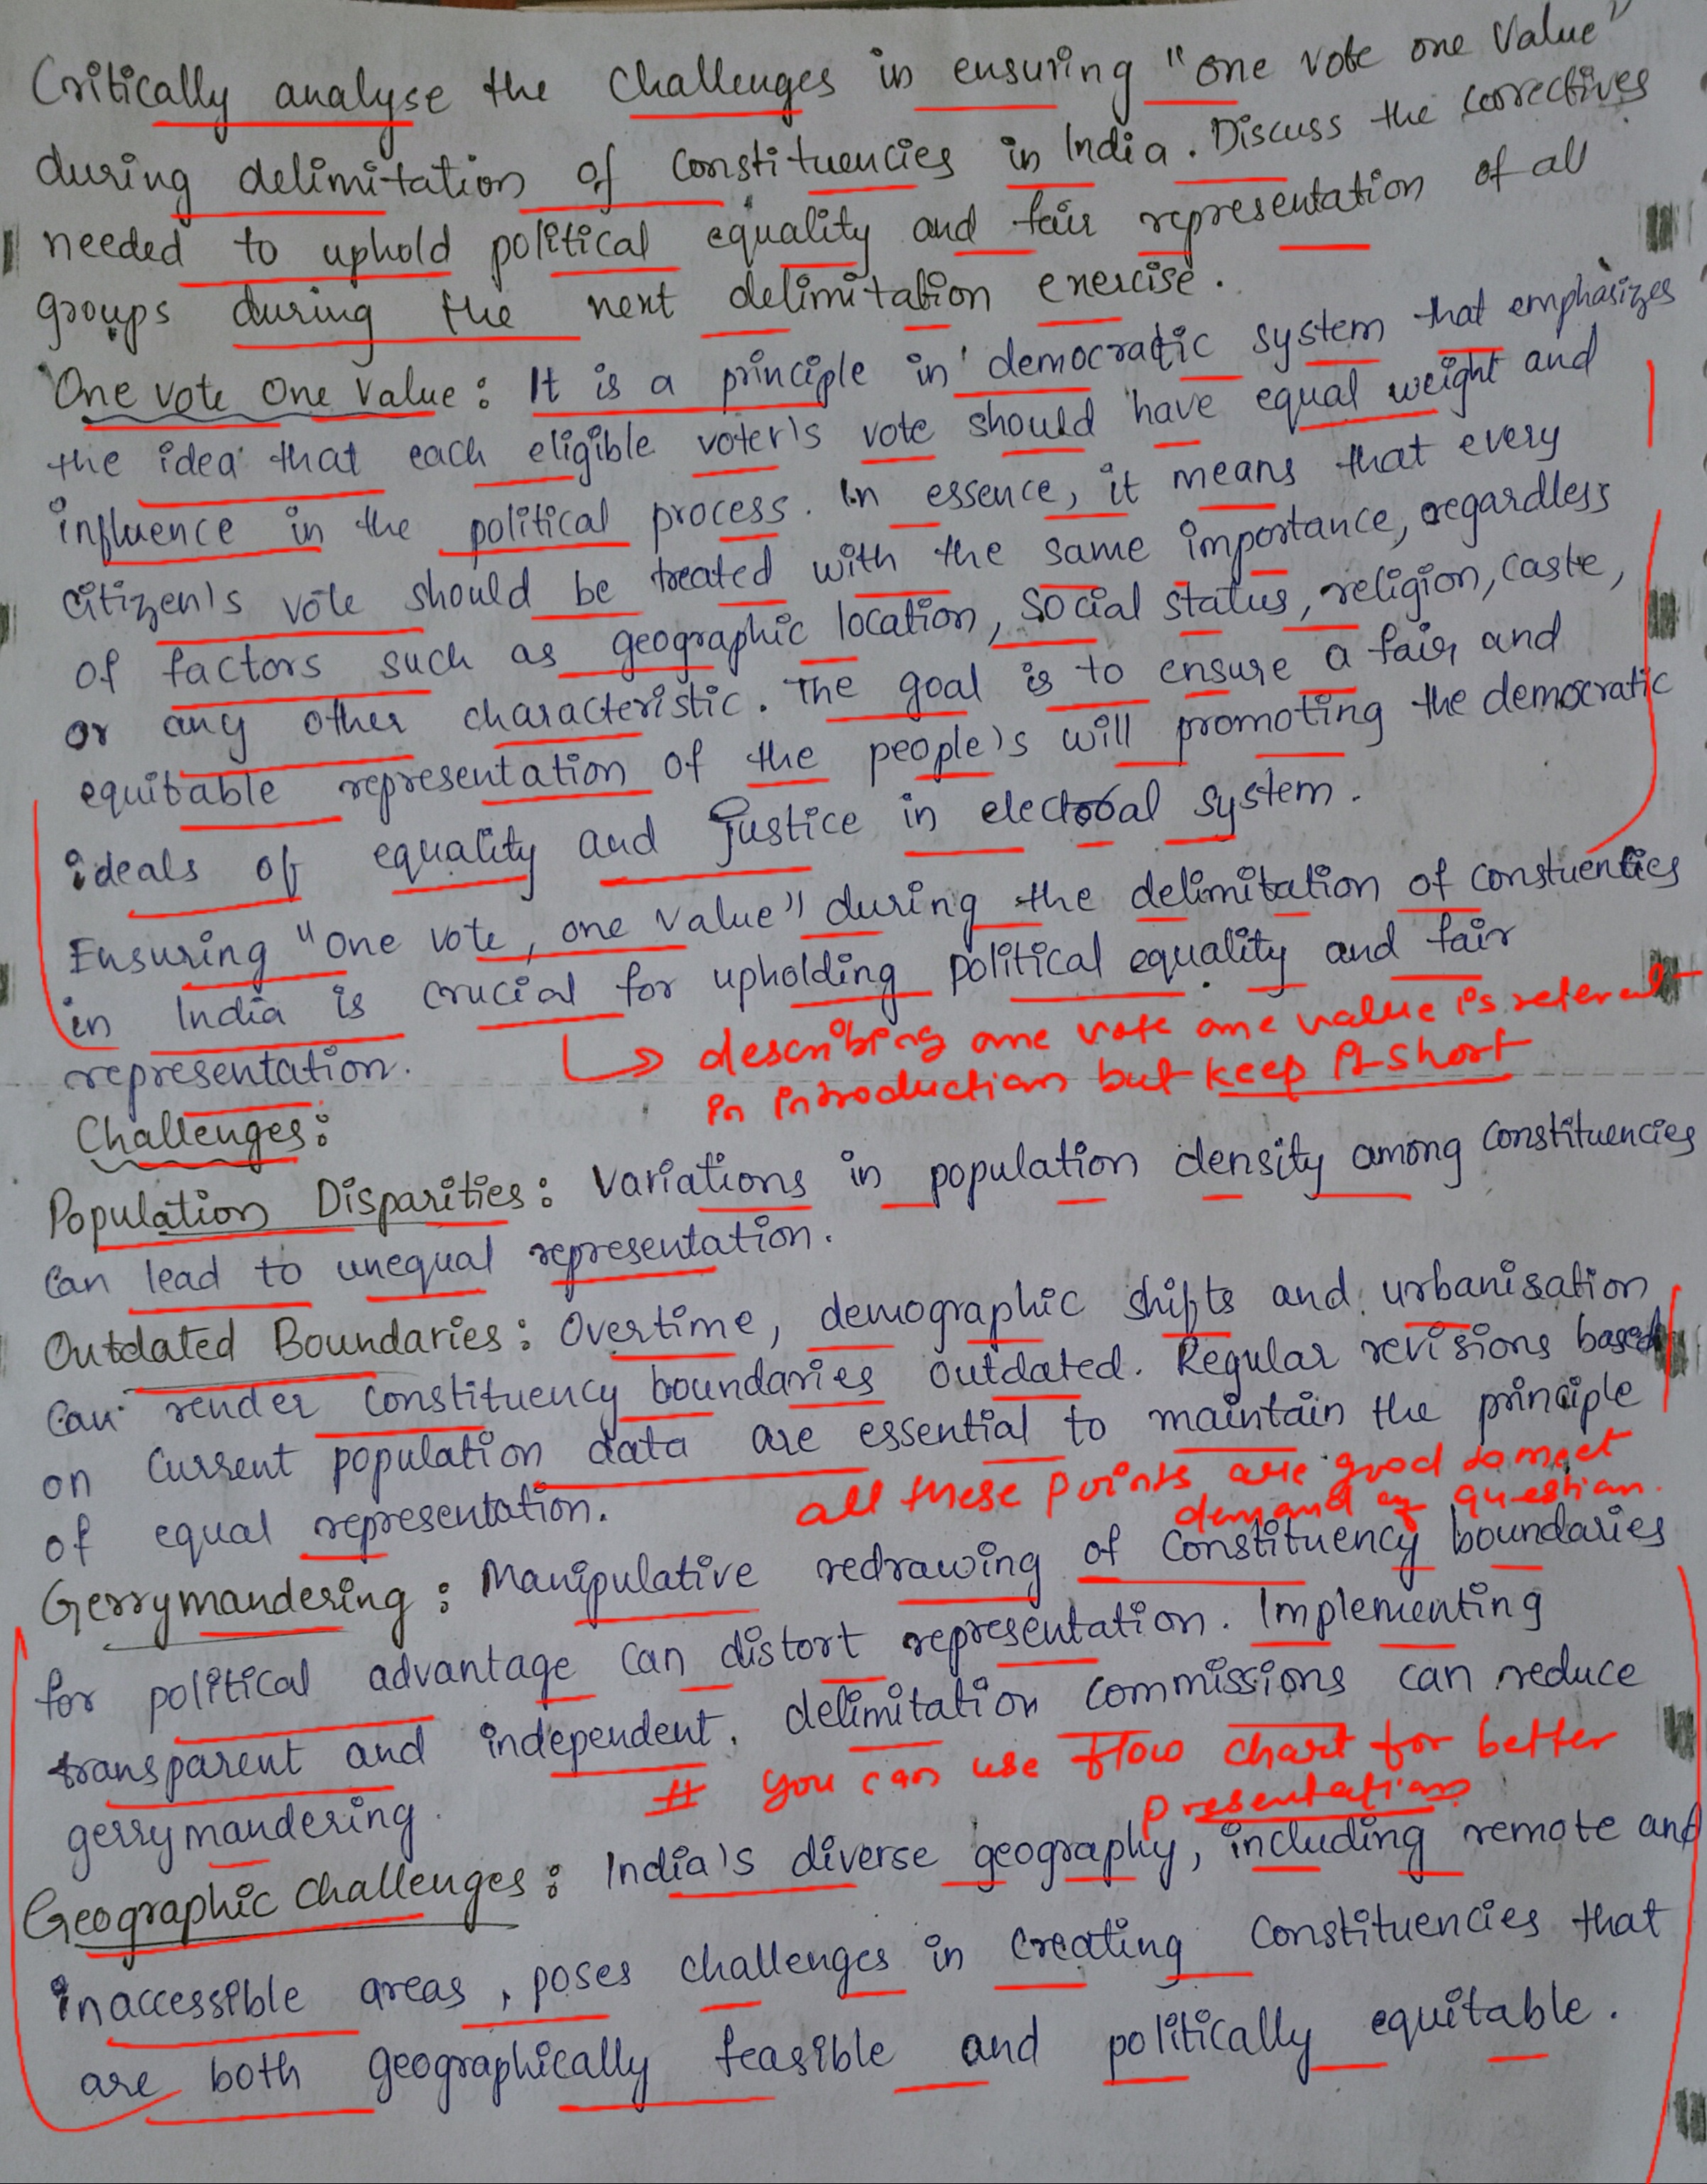 Critically analyse the challenges in ensuring "one vote one value"
during delimitation of constituencies in India. Discuss the correctives
needed to uphold political equality and fair representation of all
groups during the next delimitation exercise.
One vote One Value: It is a principle in democratic system that emphasizes
the idea that each eligible voter's vote should have equal weight and
influence in the political process. In essence, it means that every
citizen's vote should be treated with the same importance, regardless
of factors such as geographic location, social status, religion, caste,
or any other characteristic. The goal is to ensure a fair and
equitable representation of the people's will promoting the democratic
ideals of equality and justice in electoral system.
Ensuring "one vote, one value" during the delimitation of constuencies
in India is crucial for upholding political equality and fair
representation.
→ describing one vote one value is relevant
in introduction but keep it short
Challenges:
Population Disparities: Variations in population density among constituencies
can lead to unequal representation.
Outdated Boundaries: Overtime, demographic shifts and urbanisation
can render constituency boundaries outdated. Regular revisions based
on current population data are essential to maintain the principle
of equal representation.
all these points are good to meet
demand of question.
Gerrymandering: Manipulative redrawing of constituency boundaries
for political advantage can distort representation. Implementing
transparent and independent. delimitation commissions can reduce
gerrymandering.
# you can use flow chart for better
presentation
Geographic challenges: India's diverse geography, including remote and
inaccessible areas, poses challenges in creating constituencies that
are both geographically feasible and politically equitable.